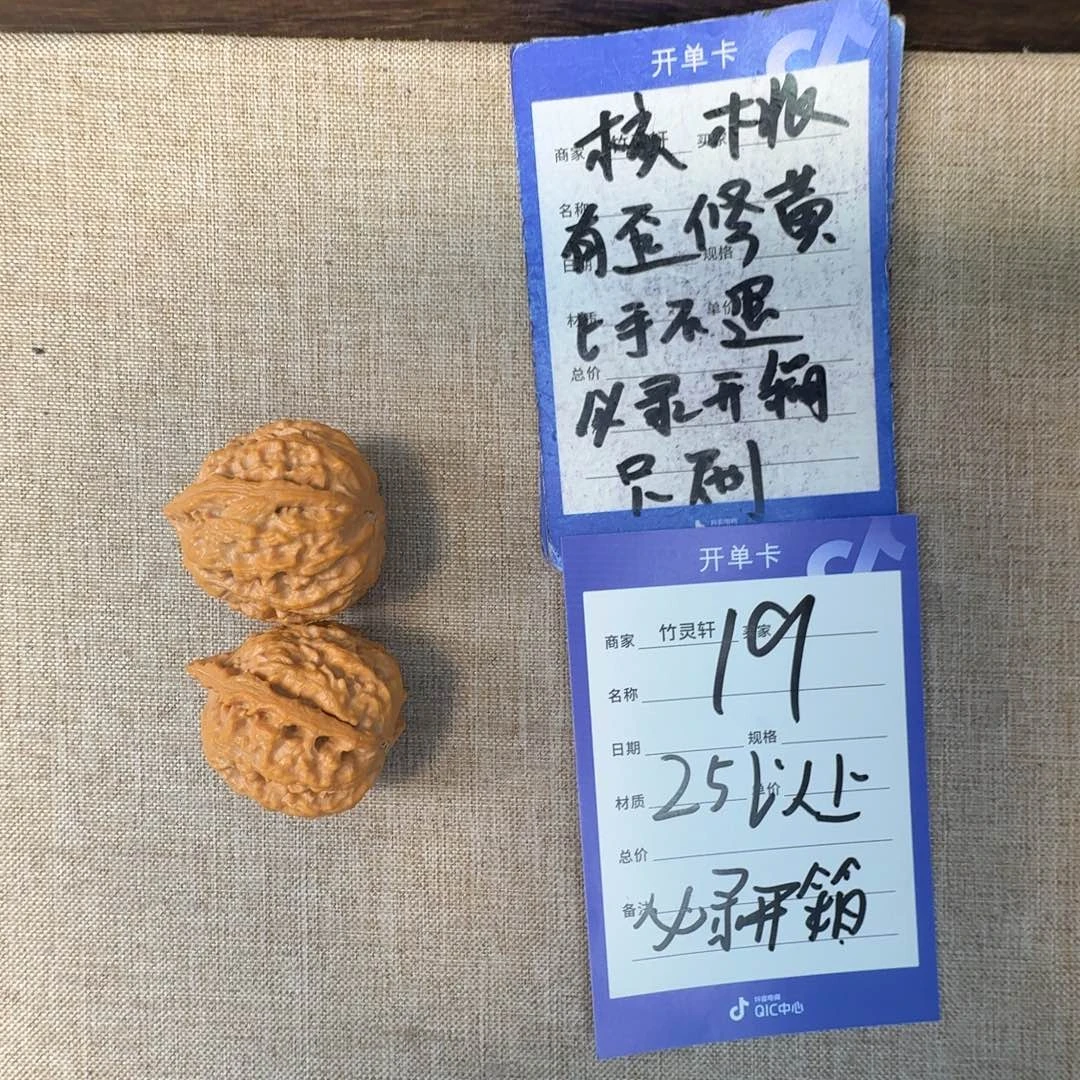 开单卡
核 木根
商家 竹灵轩 买家
名称
有歪修黄
日期 规格
上手不退
材质 单价
总价
必录开箱
只不刷
抖音电商
开单卡
商家 竹灵轩 买家
19
名称
日期 规格
材质 单价
25以上
总价
备注
必录开箱
抖音电商
QIC中心